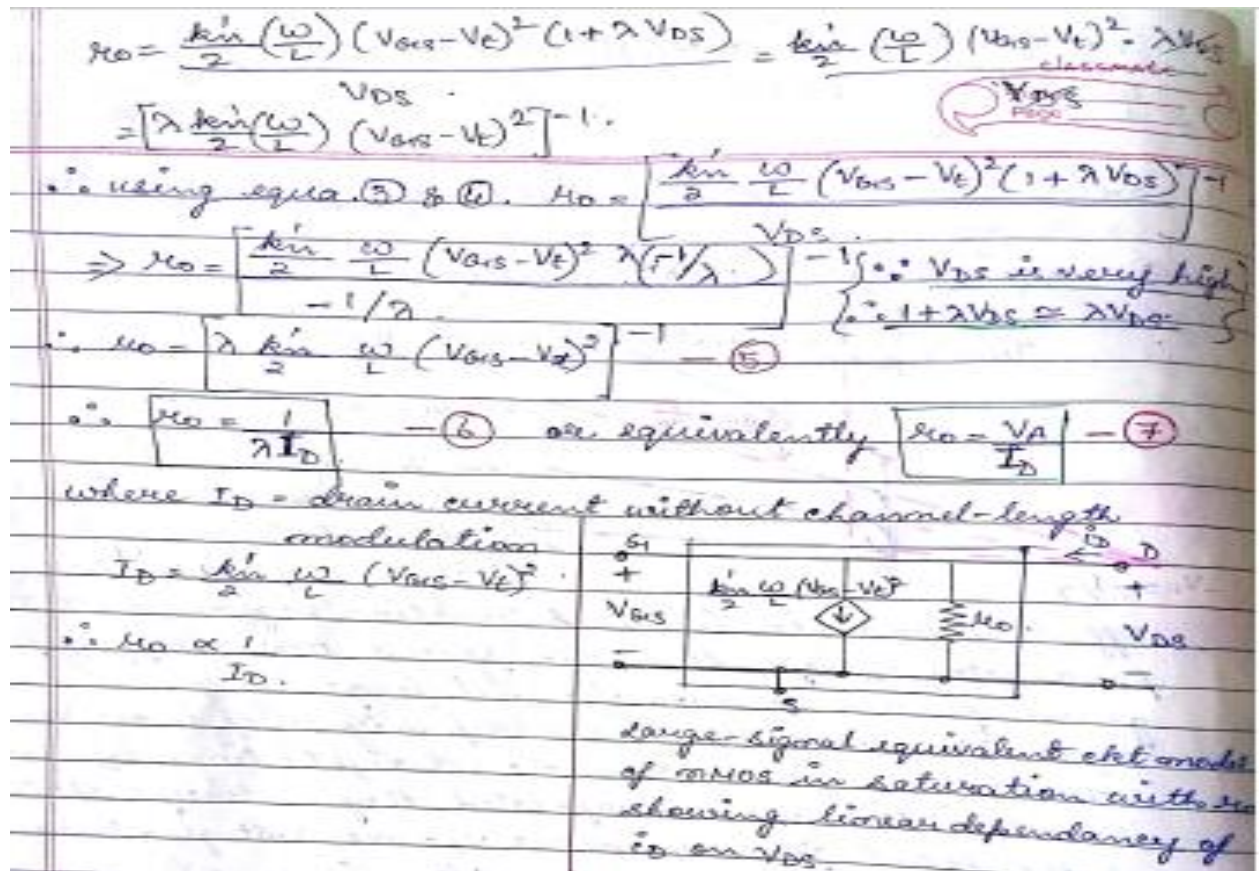 r₀ = kn'/2 (W/L) (VGS-Vt)² (1+λVDS) / VDS = kn'/2 (W/L) (VGS-Vt)² · λVDS / VDS
classmate
Page
= [λ kn'/2 (W/L) (VGS-Vt)²]⁻¹.
∴ using equa. ③ & ④. r₀ = [kn'/2 W/L (VGS-Vt)² (1+λVDS) / VDS]⁻¹
⇒ r₀ = [kn'/2 W/L (VGS-Vt)² λ(-1/λ) / -1/λ]⁻¹ {∵ VDS is very high
∴ 1+λVDS ≃ λVDS}
∴ r₀ = [λ kn'/2 W/L (VGS-Vt)²]⁻¹ — ⑤
∴ r₀ = 1/λID — ⑥ or equivalently r₀ = VA/ID — ⑦
where ID = drain current without channel-length
modulation
ID = kn'/2 W/L (VGS-Vt)².
∴ r₀ ∝ 1/ID.
G iD D
+ kn'/2 W/L (VGS-Vt)² +
VGS r₀ VDS
- -
S
Large-signal equivalent ckt model
of nMOS in saturation with r₀
showing linear dependancy of
iD on VDS.